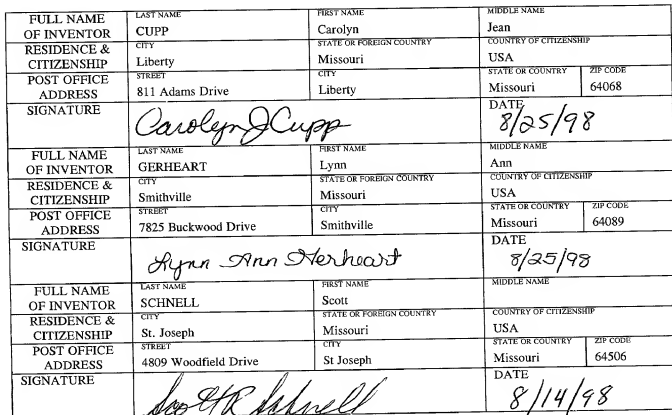 FULL NAME OF INVENTOR LAST NAME CUPP FIRST NAME Carolyn MIDDLE NAME Jean
RESIDENCE & CITIZENSHIP CITY Liberty STATE OR FOREIGN COUNTRY Missouri COUNTRY OF CITIZENSHIP USA
POST OFFICE ADDRESS STREET 811 Adams Drive CITY Liberty STATE OR COUNTRY Missouri ZIP CODE 64068
SIGNATURE Carolyn J Cupp DATE 8/25/98
FULL NAME OF INVENTOR LAST NAME GERHEART FIRST NAME Lynn MIDDLE NAME Ann
RESIDENCE & CITIZENSHIP CITY Smithville STATE OR FOREIGN COUNTRY Missouri COUNTRY OF CITIZENSHIP USA
POST OFFICE ADDRESS STREET 7825 Buckwood Drive CITY Smithville STATE OR COUNTRY Missouri ZIP CODE 64089
SIGNATURE Lynn Ann Gerheart DATE 8/25/98
FULL NAME OF INVENTOR LAST NAME SCHNELL FIRST NAME Scott MIDDLE NAME
RESIDENCE & CITIZENSHIP CITY St. Joseph STATE OR FOREIGN COUNTRY Missouri COUNTRY OF CITIZENSHIP USA
POST OFFICE ADDRESS STREET 4809 Woodfield Drive CITY St Joseph STATE OR COUNTRY Missouri ZIP CODE 64506
SIGNATURE Scott R Schnell DATE 8/14/98